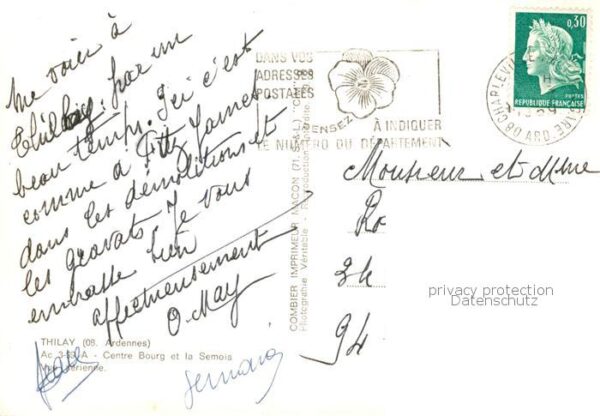 me voici à
Thilay par un
beau temps. Ici c'est
comme à Fitz James
dans les démolitions et
les gravats. Je vous
embrasse bien
affectueusement
O. May
THILAY (08. Ardennes)
Ac - Centre Bourg et la Semois
Vue aérienne.
COMBIER IMPRIMEUR MACON (71. S.-&-L.) "C
Photographie Véritable - Reproduction
DANS VOS
ADRESSES
POSTALES
PENSEZ
À INDIQUER
LE NUMÉRO DU DÉPARTEMENT
0,30
POSTES
REPUBLIQUE FRANÇAISE
08 CHARLEVILLE
ARD
Monsieur et Mme
Ro
24
94
privacy protection
Datenschutz